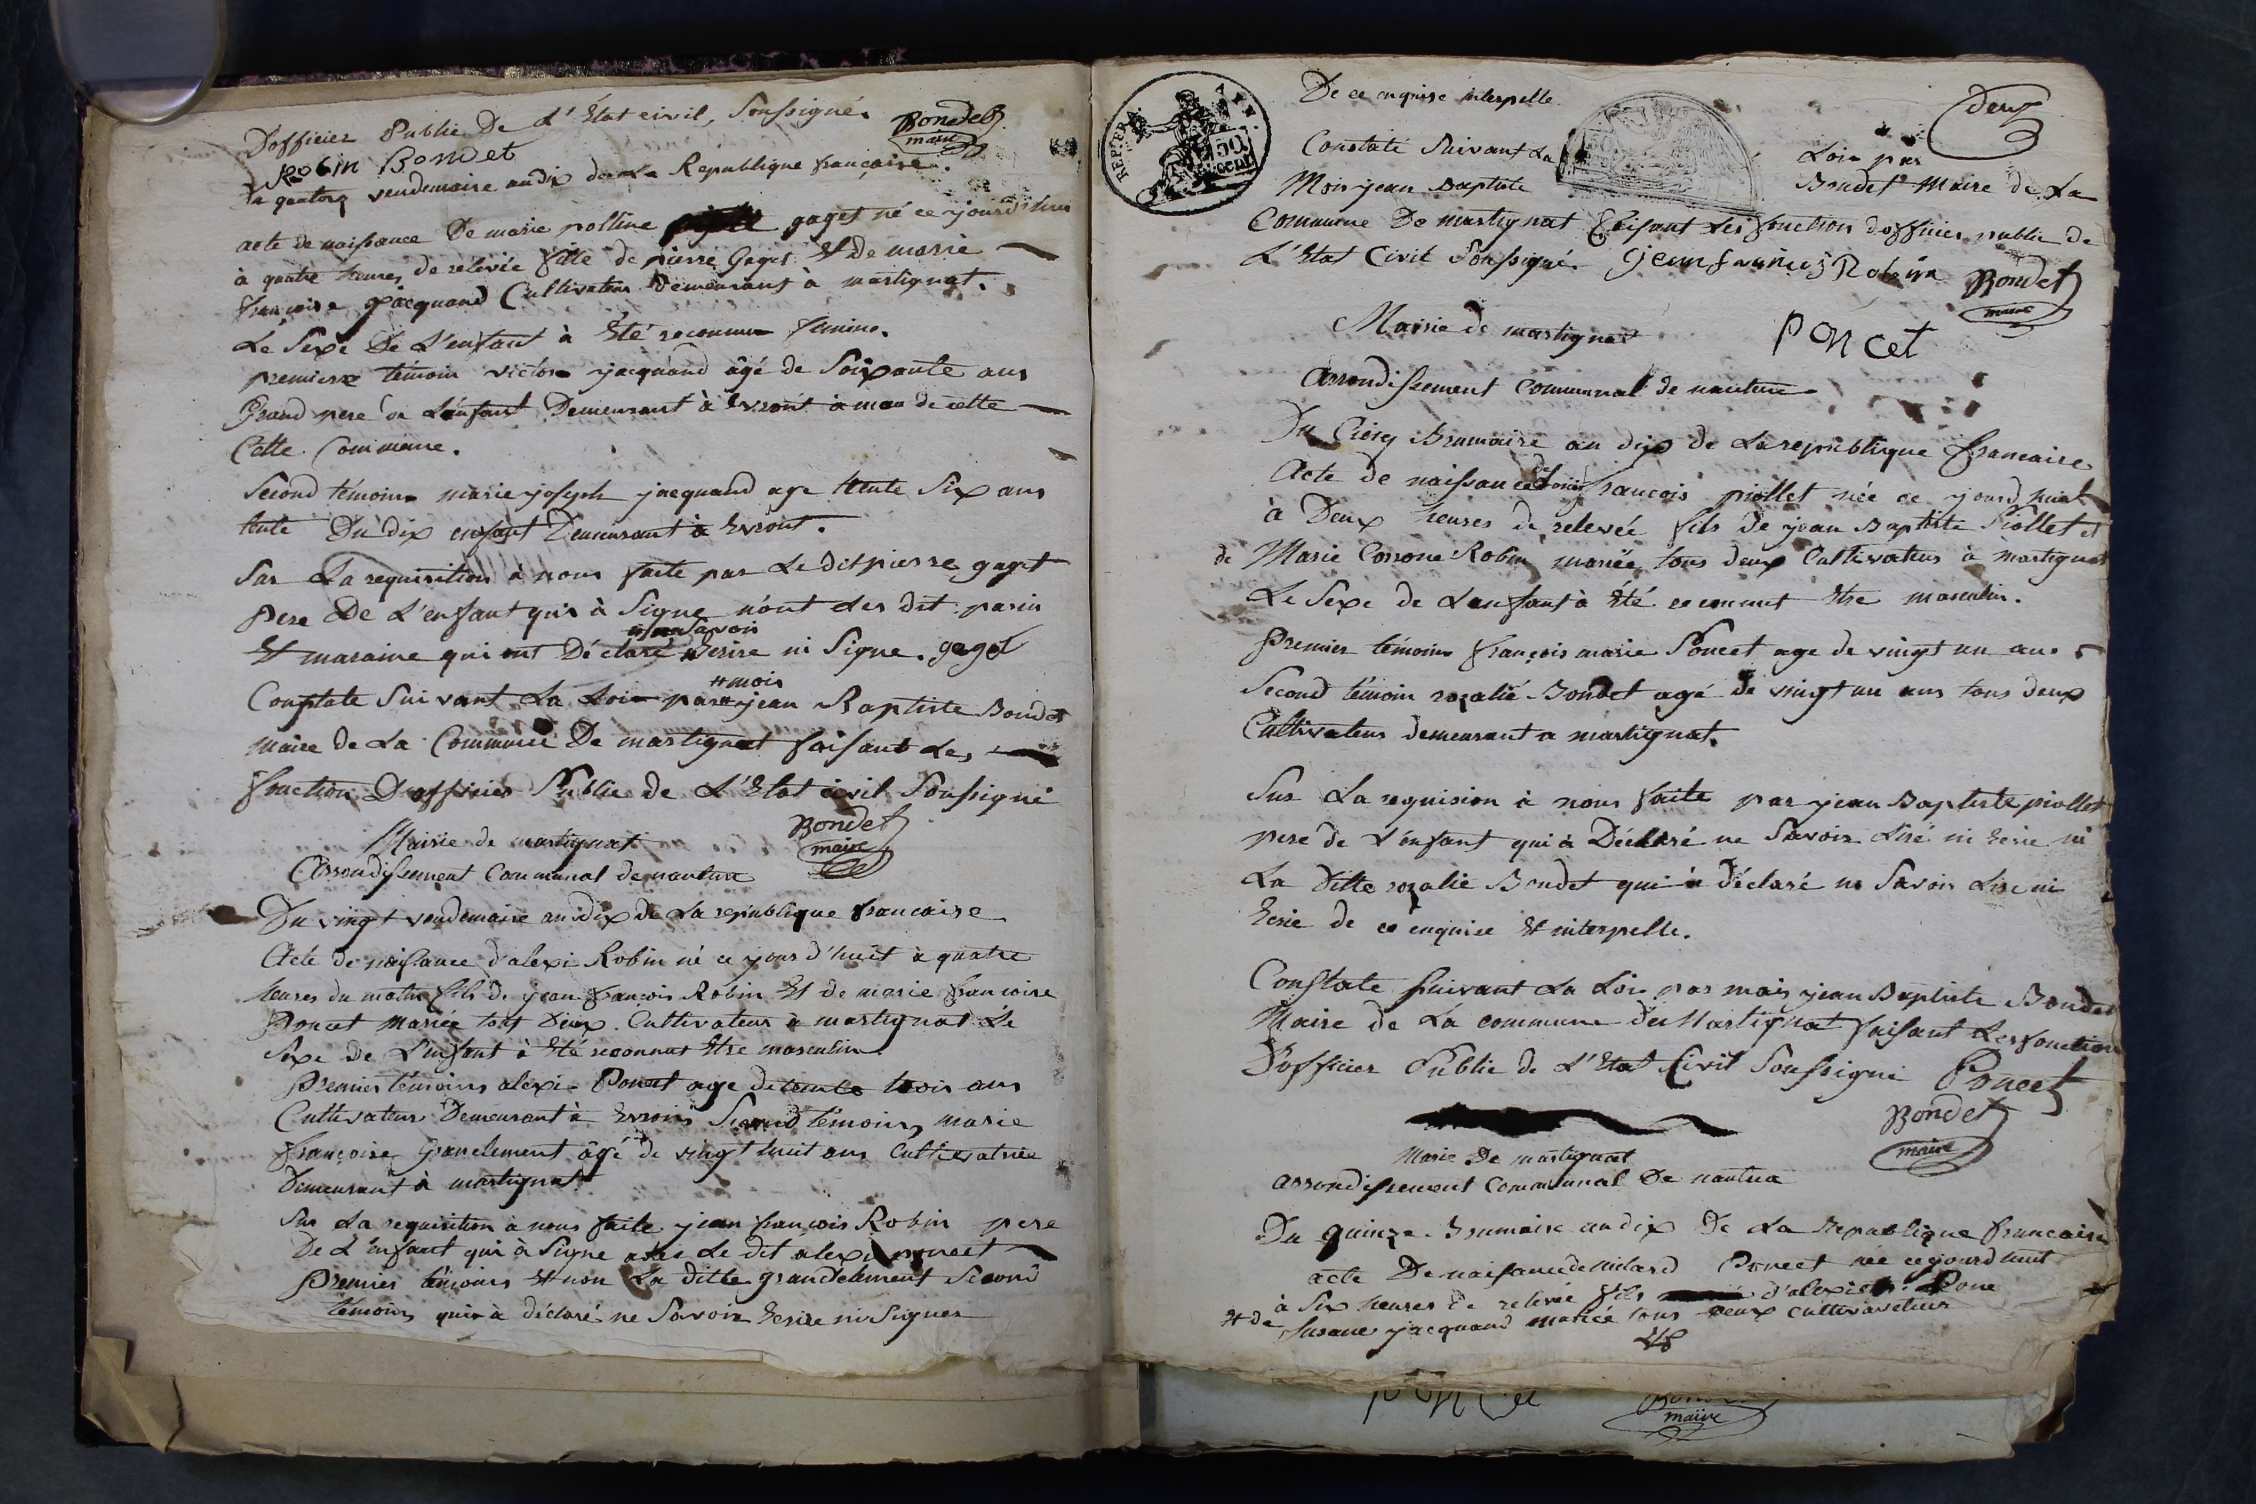 D'officier Public De L'Etat civil, Soussigné. Bondet
maire
Robin Bondet
quatorz vendemaire an dix de La Republique francaise.
acte de naissance De marie polline gaget né ce yourd'huy
à quatre heures de relevée fille de pierre Gaget Et De marie
françoise yacquand Cultivateur Demeurant à martignat.
Le Sexe De L'enfant à Eté reconnu feminin.
premiere témoin victore yacquand âgé de Soixante ans
Grand pere de L'enfant Demeurant à Evront de cette
Cette Commune.
Second témoin marie joseph yacquand age trente Six ans
tente Du dix enfant Demeurant à Evront.
Sur La requisition à nous faite par Le dit pierre gaget
pere De L'enfant qui à Signe n'ont Les dit parin
Savoir
Et maraine qui ont Déclaré Ecrire ni Signe. gaget
# mois
Constate Suivant La Loi par yean Baptiste Bondet
maire de La Commune De martignat faisant Les
fonction D'officier Public de L'Etat civil Soussigné
Bondet
maire
Mairie de martignat
Arrondissement Communal de nantua
Du vingt vendemaire an dix de La republique francaise
Acte de naissance d'alexi Robin né ce yourd'huit à quatre
heures du matin fils de yean françois Robin Et de marie francoise
Poncet Mariée tous Deux Cultivateur à martignat Le
Sexe de L'enfant à Eté reconnut Etre masculin
Premier témoins alexi Poncet age de trente trois ans
Cultivateur Demeurant à Evron Second témoins marie
françoise grandclement âgé de vingt huit ans Cultivatrice
Demeurant à martignat
Sur La requisition à nous faite yean françois Robin pere
De L'enfant qui à Signe avec Le dit alexi poncet
Premier témoins Et non La ditte grandclement Second
témoins qui à déclaré ne Savoir Ecrire ni Signer
De ce enquise interpelle.
Deux
REP. FRA.
50
CENT
Constaté Suivant La Loix par
Mois yean Baptiste Bondet Maire de La
Commune De martignat faisant Les fonction d'officier public de
L'Etat Civil Soussigné. jean françois Robin Bondet
maire
Mairie de martignat Poncet
Arrondissement Communal de nantua
Du Cinq Brumaire an dix de La republique francaise
Acte de naissance de françois piollet née ce yourd'huit
à Deux heures de relevée fils de yean Baptiste Piollet et
de Marie Robin mariée tous deux Cultivateur à martignat
Le Sexe de L'enfant à Eté reconnut Etre masculin.
Premier témoin françois marie Poncet age de vingt un ans
Second témoin rozalie Bondet agé de vingt un ans tous deux
Cultivateur demeurant a martignat.
Sur La requision à nous faite par yean Baptiste piollet
pere de L'enfant qui à Déclaré ne Savoir Lire ni Ecrie ni
La Ditte rozalie Bondet qui à Déclaré ne Savoir Lire ni
Ecrie de ce enquise Et interpelle.
Constate Suivant La Loi par mois yean Baptiste Bondet
Maire de La commune de Martignat faisant Les fonction
D'officier Public de L'Etat Civil Soussigné Poncet
Bondet
maire
Marie De martignat
arrondissement Communal De nantua
Du quinze Brumaire an dix De La Republique francaise
acte De naissance de Poncet née ce yourd'huit
à Six heures de relevée fils d'alexi Ponc
Et de Susane yacquand mariée tous deux cultivateur
Poncet Bondet
maire